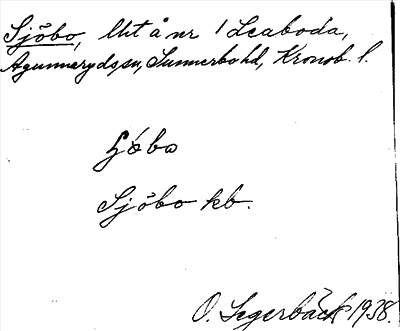 Sjöbo, lht å nr 1 Leaboda,
Agunnaryds sn, Sunnerbo hd, Kronob. l.
ʃö́bo
Sjöbo kb.
O. Segerbäck 1938.